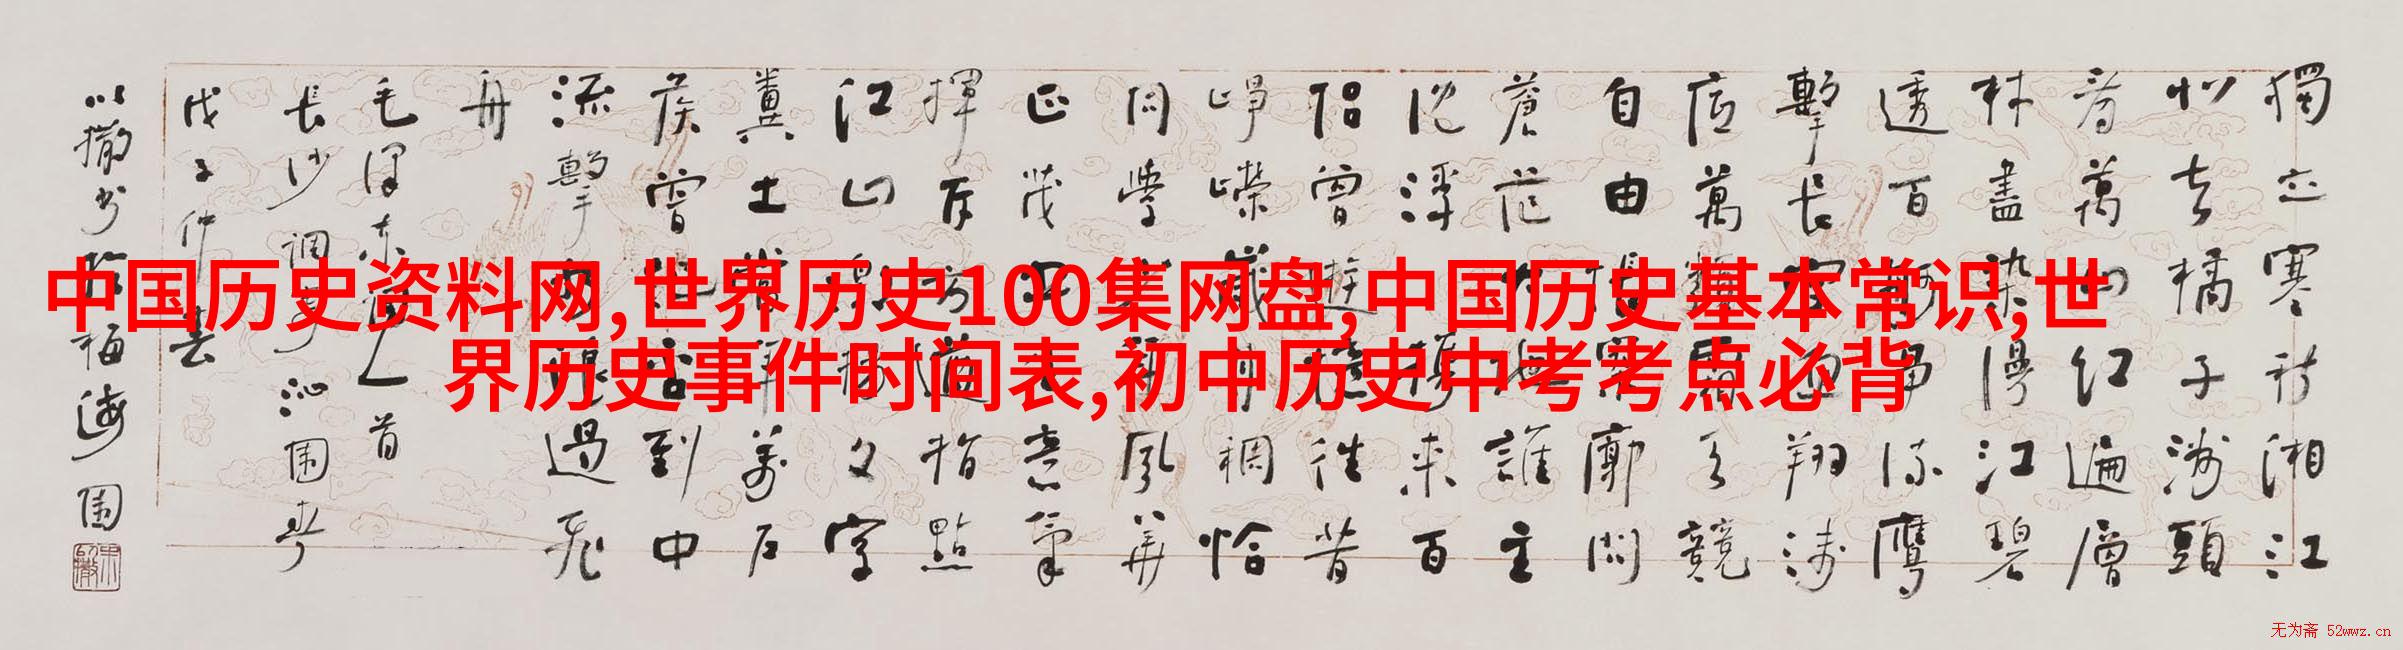 中国历史资料网,世界历史100集网盘,中国历史基本常识,世
界历史事件时间表,初中历史中考考点必背
獨立寒秋湘江
北去橘子洲頭
看萬山红遍層
林盡染漫江碧
透百舸争流鷹
擊長空鱼翔淺
底萬類霜天競
自由悵寥廓問
蒼茫大地誰主
沈浮携来百
侣曾遊憶往昔
崢嶸歲月稠恰
同學少年風華
正茂書生意氣
揮斥方遒指點
江山激揚文字
糞土當年萬户
侯曾記否到中
流擊水浪遏飛
舟
毛澤東詞一首
長沙調寄沁園春
戊子仲春
以撒书於梅海園
无为斋 52wwz.cn